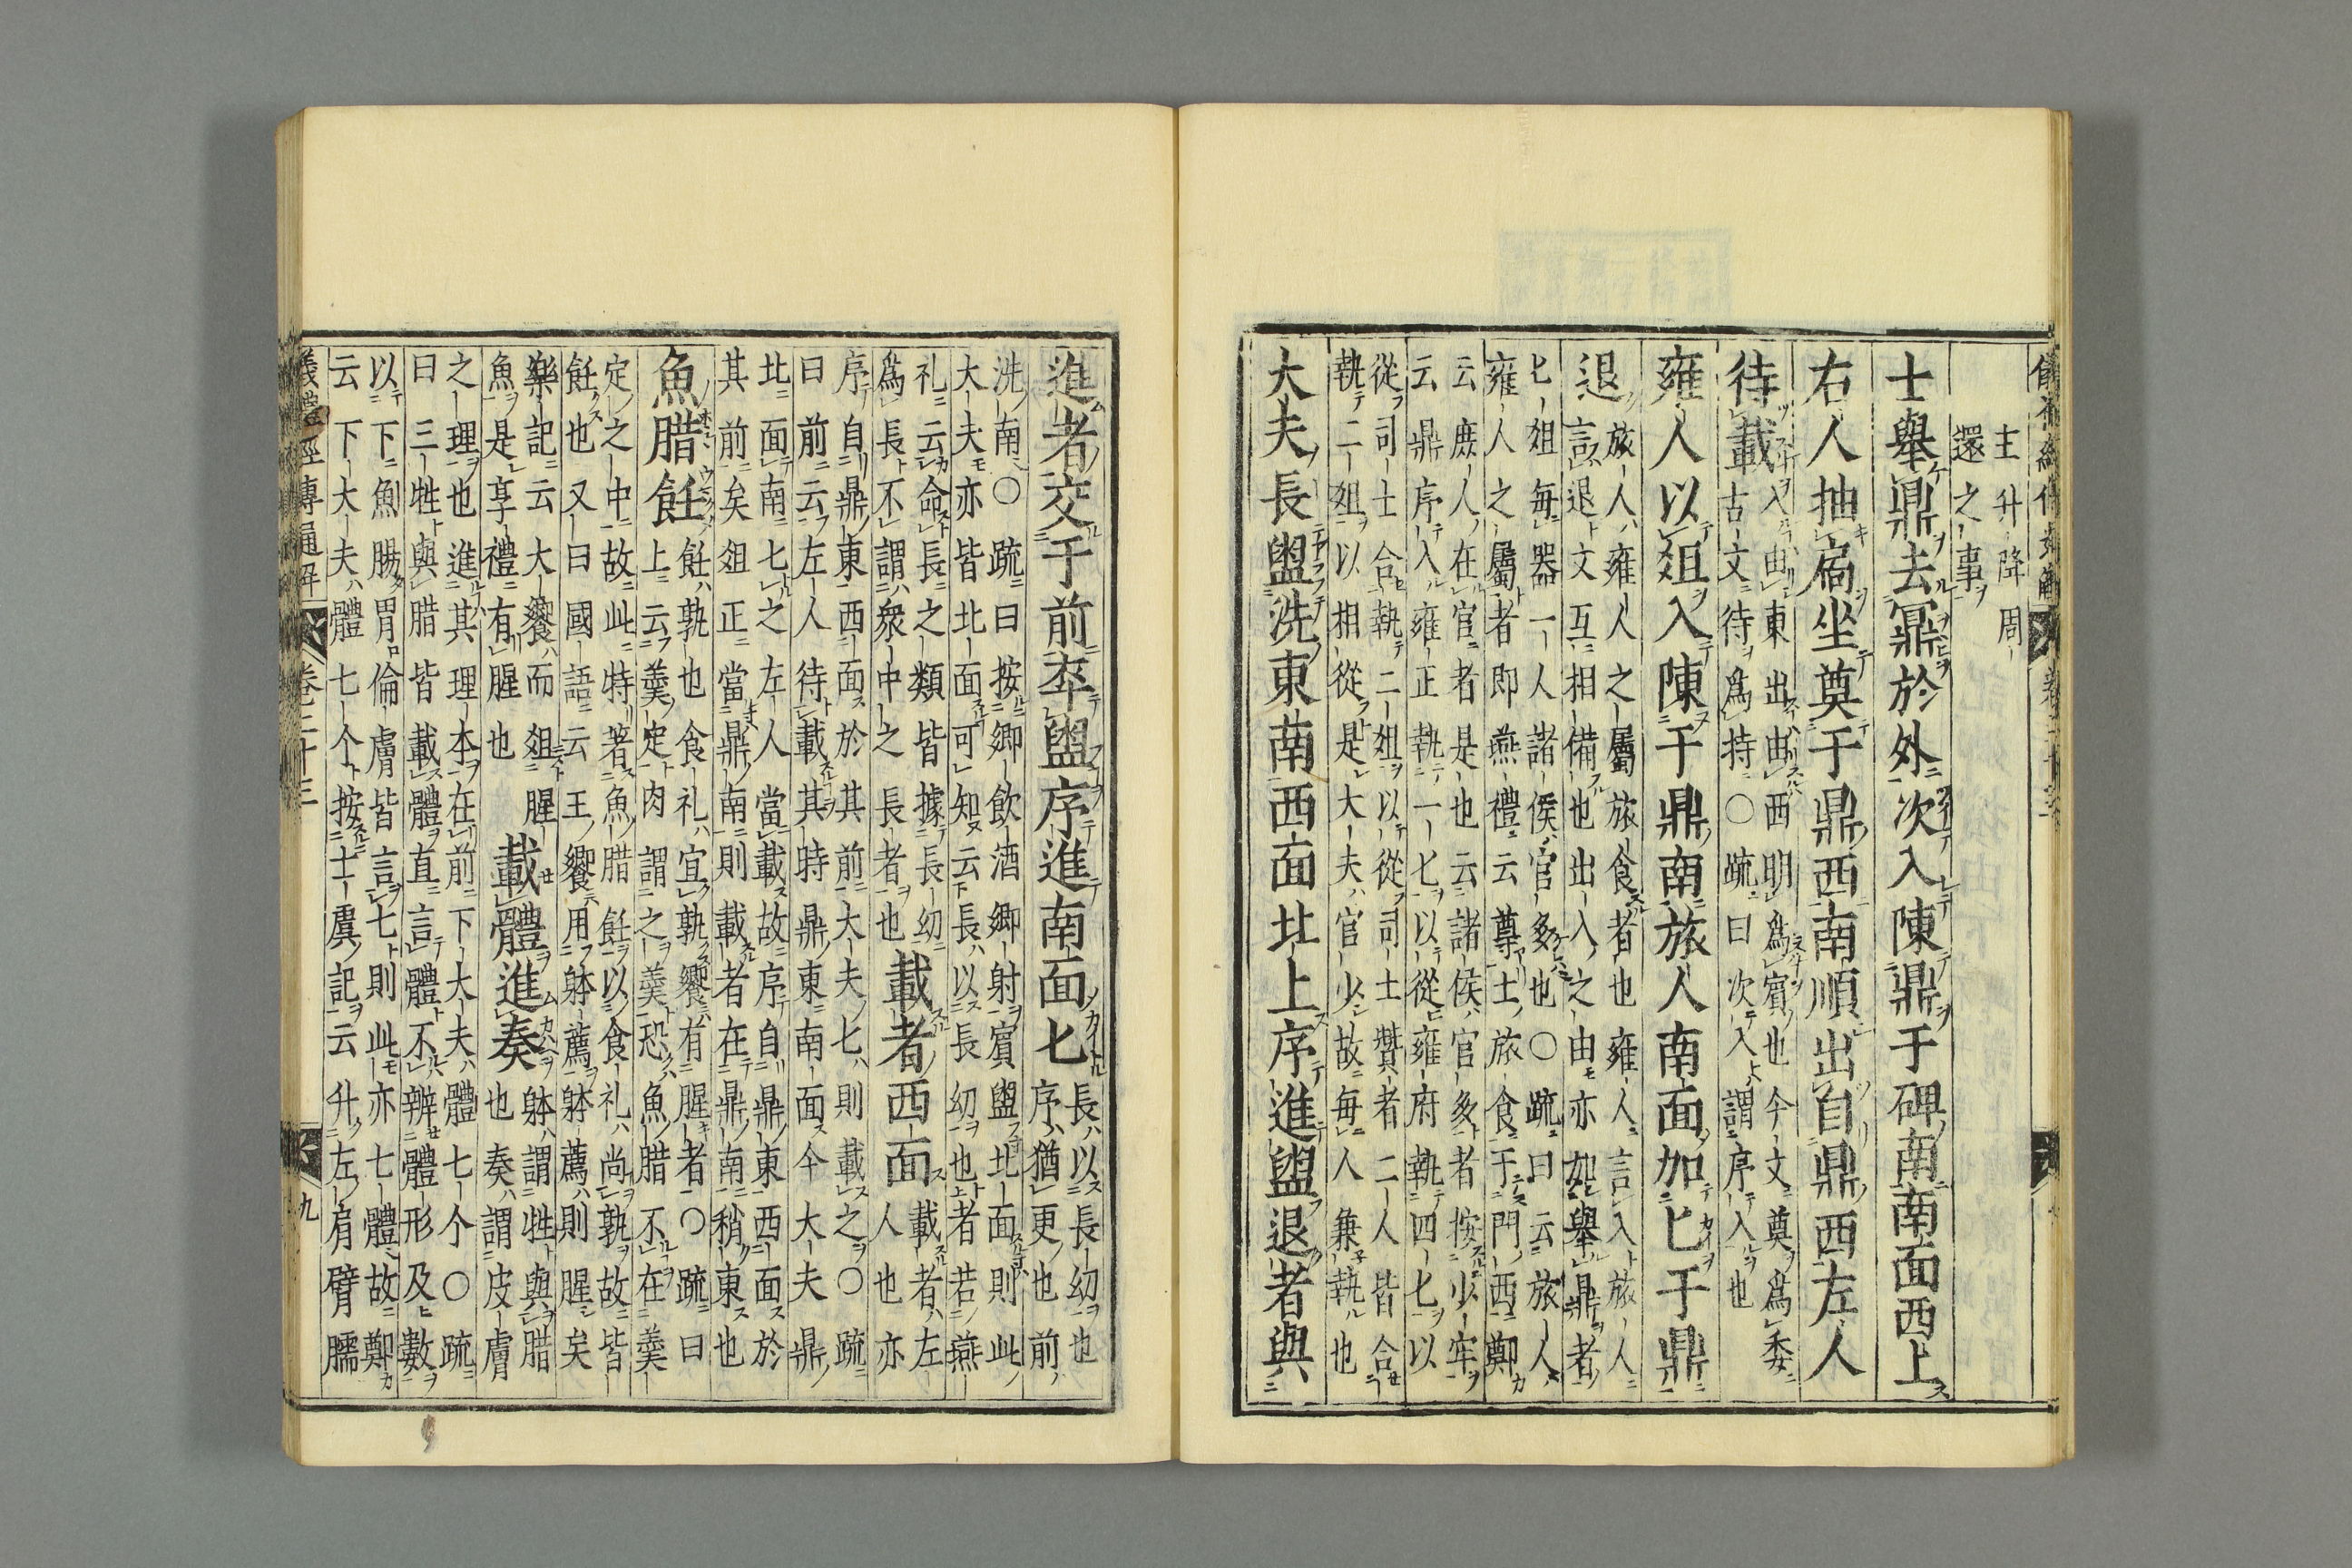 儀禮經傳通解 卷二十三
主升降周
還之事
士舉鼎去鼏於外次入陳鼎于碑南南面西上
右人抽扃坐奠于鼎西南順出自鼎西左人
待載
入由東出由西明爲賓也今文奠爲委
古文待爲持○疏曰次入謂序入也
雍人以俎入陳于鼎南旅人南面加匕于鼎
退
旅人雍人之屬旅食者也雍人言入旅人
言退文互相備也出入之由亦如舉鼎者
匕俎每器一人諸侯官多也○疏曰云旅人
雍人之屬者即燕禮云尊士旅食于門西鄭
云庶人在官者是也云諸侯官多者按少牢
云鼎序入雍正執一匕以從雍府執四匕以
從司士合執二俎以從司士贊者二人皆合
執二俎以相從是大夫官少故每人兼執也
大夫長盥洗東南西面北上序進盥退者與
進者交于前卒盥序進南面匕
長以長幼也
序猶更也前
洗南○疏曰按鄉飲酒鄉射賓盥北面則此
大夫亦皆北面可知云長以長幼也者若燕
礼云命長之類皆據長幼
爲長不謂衆中之長者也
載者西面
載者左
人也亦
序自鼎東西面於其前大夫匕則載之○疏
曰前云左人待載其時鼎東南面今大夫鼎
北面南匕之左人當載故序自鼎東西面於
其前矣俎正當鼎南則載者在鼎南稍東也
魚腊飪
飪孰也食礼宜孰饗有腥者○疏曰
上云羹定肉謂之羹恐魚腊不在羹
定之中故此特著魚腊飪以食礼尚孰故皆
飪也又曰國語云王饗用躰薦躰薦則腥矣
樂記云大饗而俎腥
魚是享禮有腥也
載體進奏
躰謂牲與腊
也奏謂皮膚
之理也進其理本在前下大夫體七个○疏
曰三牲與腊皆載體直言體不辨體形及數
以下魚腸胃倫膚皆言七則此亦七體故鄭
云下大夫體七个按士虞記云升左肩臂臑
儀禮經傳通解 卷二十三 九